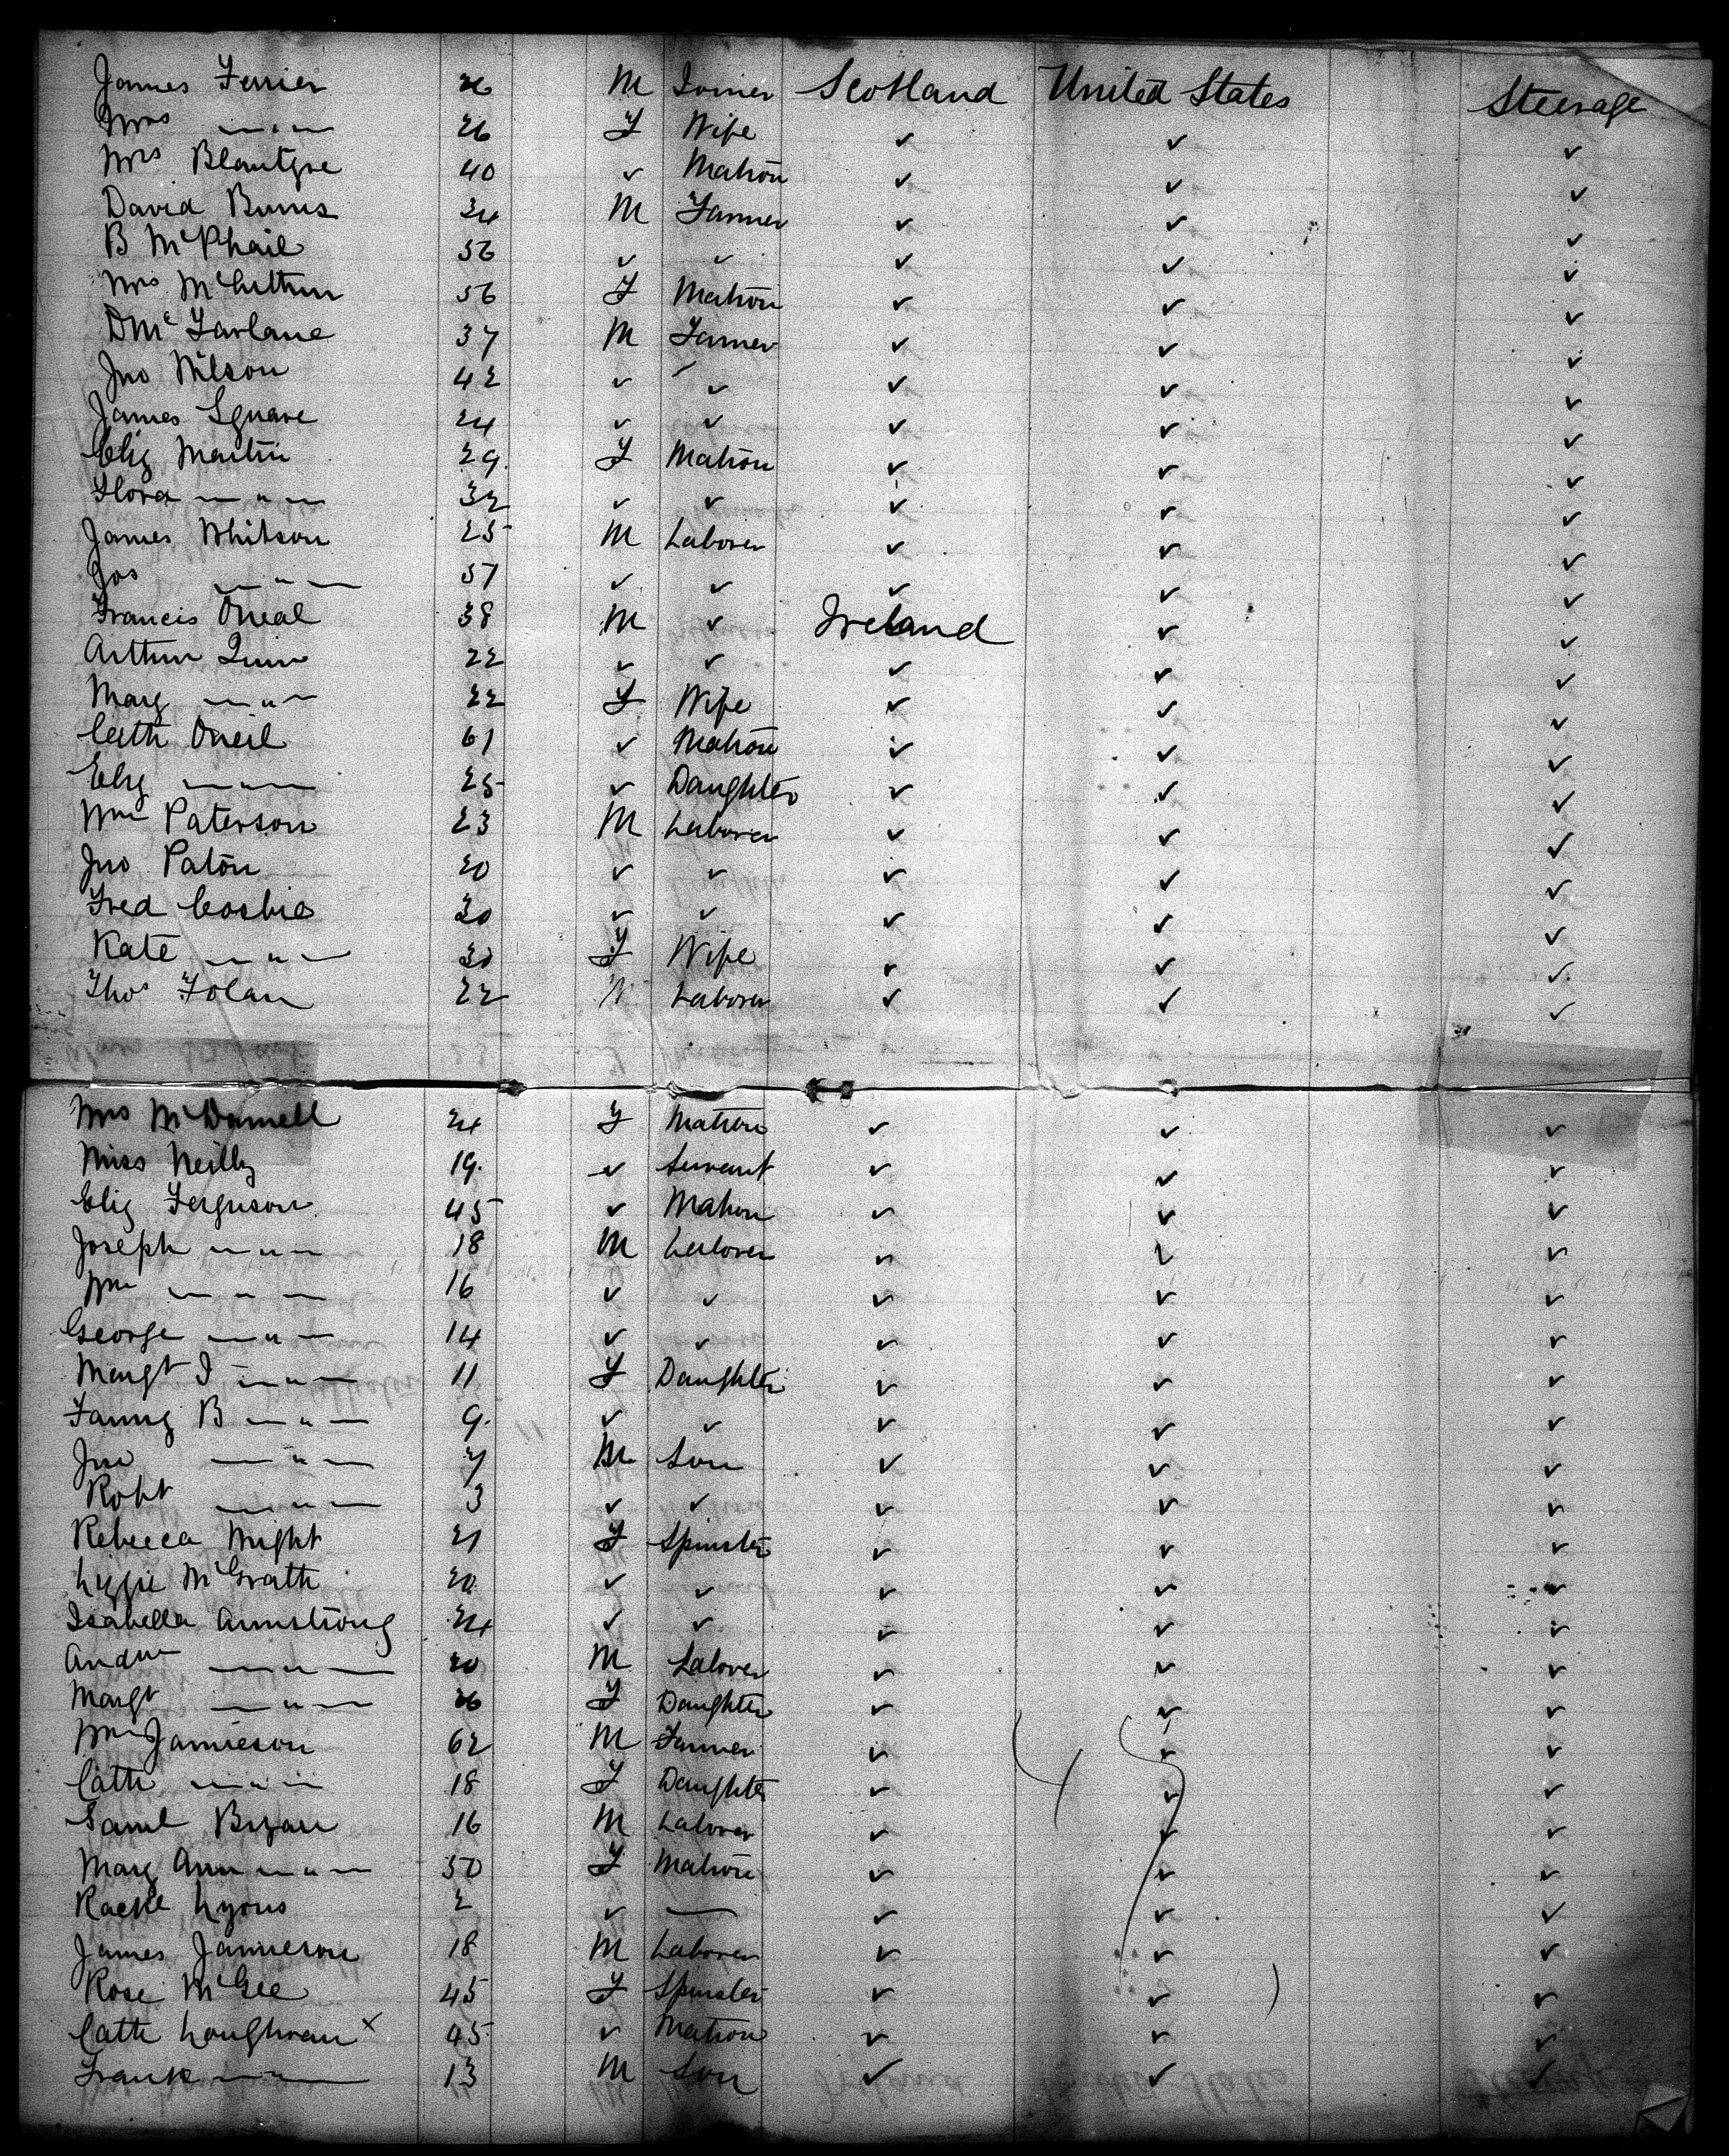 James Ferrier 26 M Joiner Scotland United States Steerage
Mrs — " — 26 F Wife ✓ ✓ ✓
Mrs Blantyre 40 ✓ Matron ✓ ✓ ✓
David Burns 24 M Farmer ✓ ✓ ✓
B McPhail 56 ✓ ✓ ✓ ✓ ✓
Mrs McArthur 56 F Matron ✓ ✓ ✓
D McFarlane 37 M Farmer ✓ ✓ ✓
Jno Wilson 42 ✓ ✓ ✓ ✓ ✓
James Square 24 ✓ ✓ ✓ ✓ ✓
Eliz Martin 29 F Matron ✓ ✓ ✓
Flora — " — 32 ✓ ✓ ✓ ✓ ✓
James Whitson 25 M Laborer ✓ ✓ ✓
Jos — " — 57 ✓ ✓ ✓ ✓ ✓
Francis Oneal 38 M ✓ Ireland ✓ ✓
Arthur Quinn 22 ✓ ✓ ✓ ✓ ✓
Mary — " — 22 F Wife ✓ ✓ ✓
Cath Oneil 61 ✓ Matron ✓ ✓ ✓
Eliz — " — 25 ✓ Daughter ✓ ✓ ✓
Wm Paterson 23 M Laborer ✓ ✓ ✓
Jno Paton 20 ✓ ✓ ✓ ✓ ✓
Fred Coskie ✓ ✓ ✓ ✓ ✓
Kate — " — F Wife ✓ ✓ ✓
Thos Folan 22 M Laborer ✓ ✓ ✓
Mrs McDannell 24 F Matron ✓ ✓ ✓
Miss Neilly 19 ✓ Servant ✓ ✓ ✓
Eliz Ferguson 45 ✓ Matron ✓ ✓ ✓
Joseph — " — 18 M Laborer ✓ ✓ ✓
Wm — " — 16 ✓ ✓ ✓ ✓ ✓
George — " — 14 ✓ ✓ ✓ ✓ ✓
Margt J — " — 11 F Daughter ✓ ✓ ✓
Fanny B — " — 9 ✓ ✓ ✓ ✓ ✓
Jno — " — 7 M Son ✓ ✓ ✓
Robt — " — 3 ✓ ✓ ✓ ✓ ✓
Rebecca Wright 21 F Spinster ✓ ✓ ✓
Lizzie McGrath 20 ✓ ✓ ✓ ✓ ✓
Isabella Armstrong 24 ✓ ✓ ✓ ✓ ✓
Andw — " — 20 M Laborer ✓ ✓ ✓
Margt — " — 26 F Daughter ✓ ✓ ✓
Wm Jamieson 62 M Farmer ✓ ✓ ✓
Cath — " — 18 F Daughter ✓ ✓ ✓
Saml Bryan 16 M Laborer ✓ ✓ ✓
Mary Ann — " — 50 F Matron ✓ ✓ ✓
Rachl Lyons 2 ✓ — ✓ ✓ ✓
James Jamieson 18 M Laborer ✓ ✓ ✓
Rose McGee 45 F Spinster ✓ ✓ ✓
Cath Loughran x 45 ✓ Matron ✓ ✓ ✓
Frank — " — 13 M Son ✓ ✓ ✓